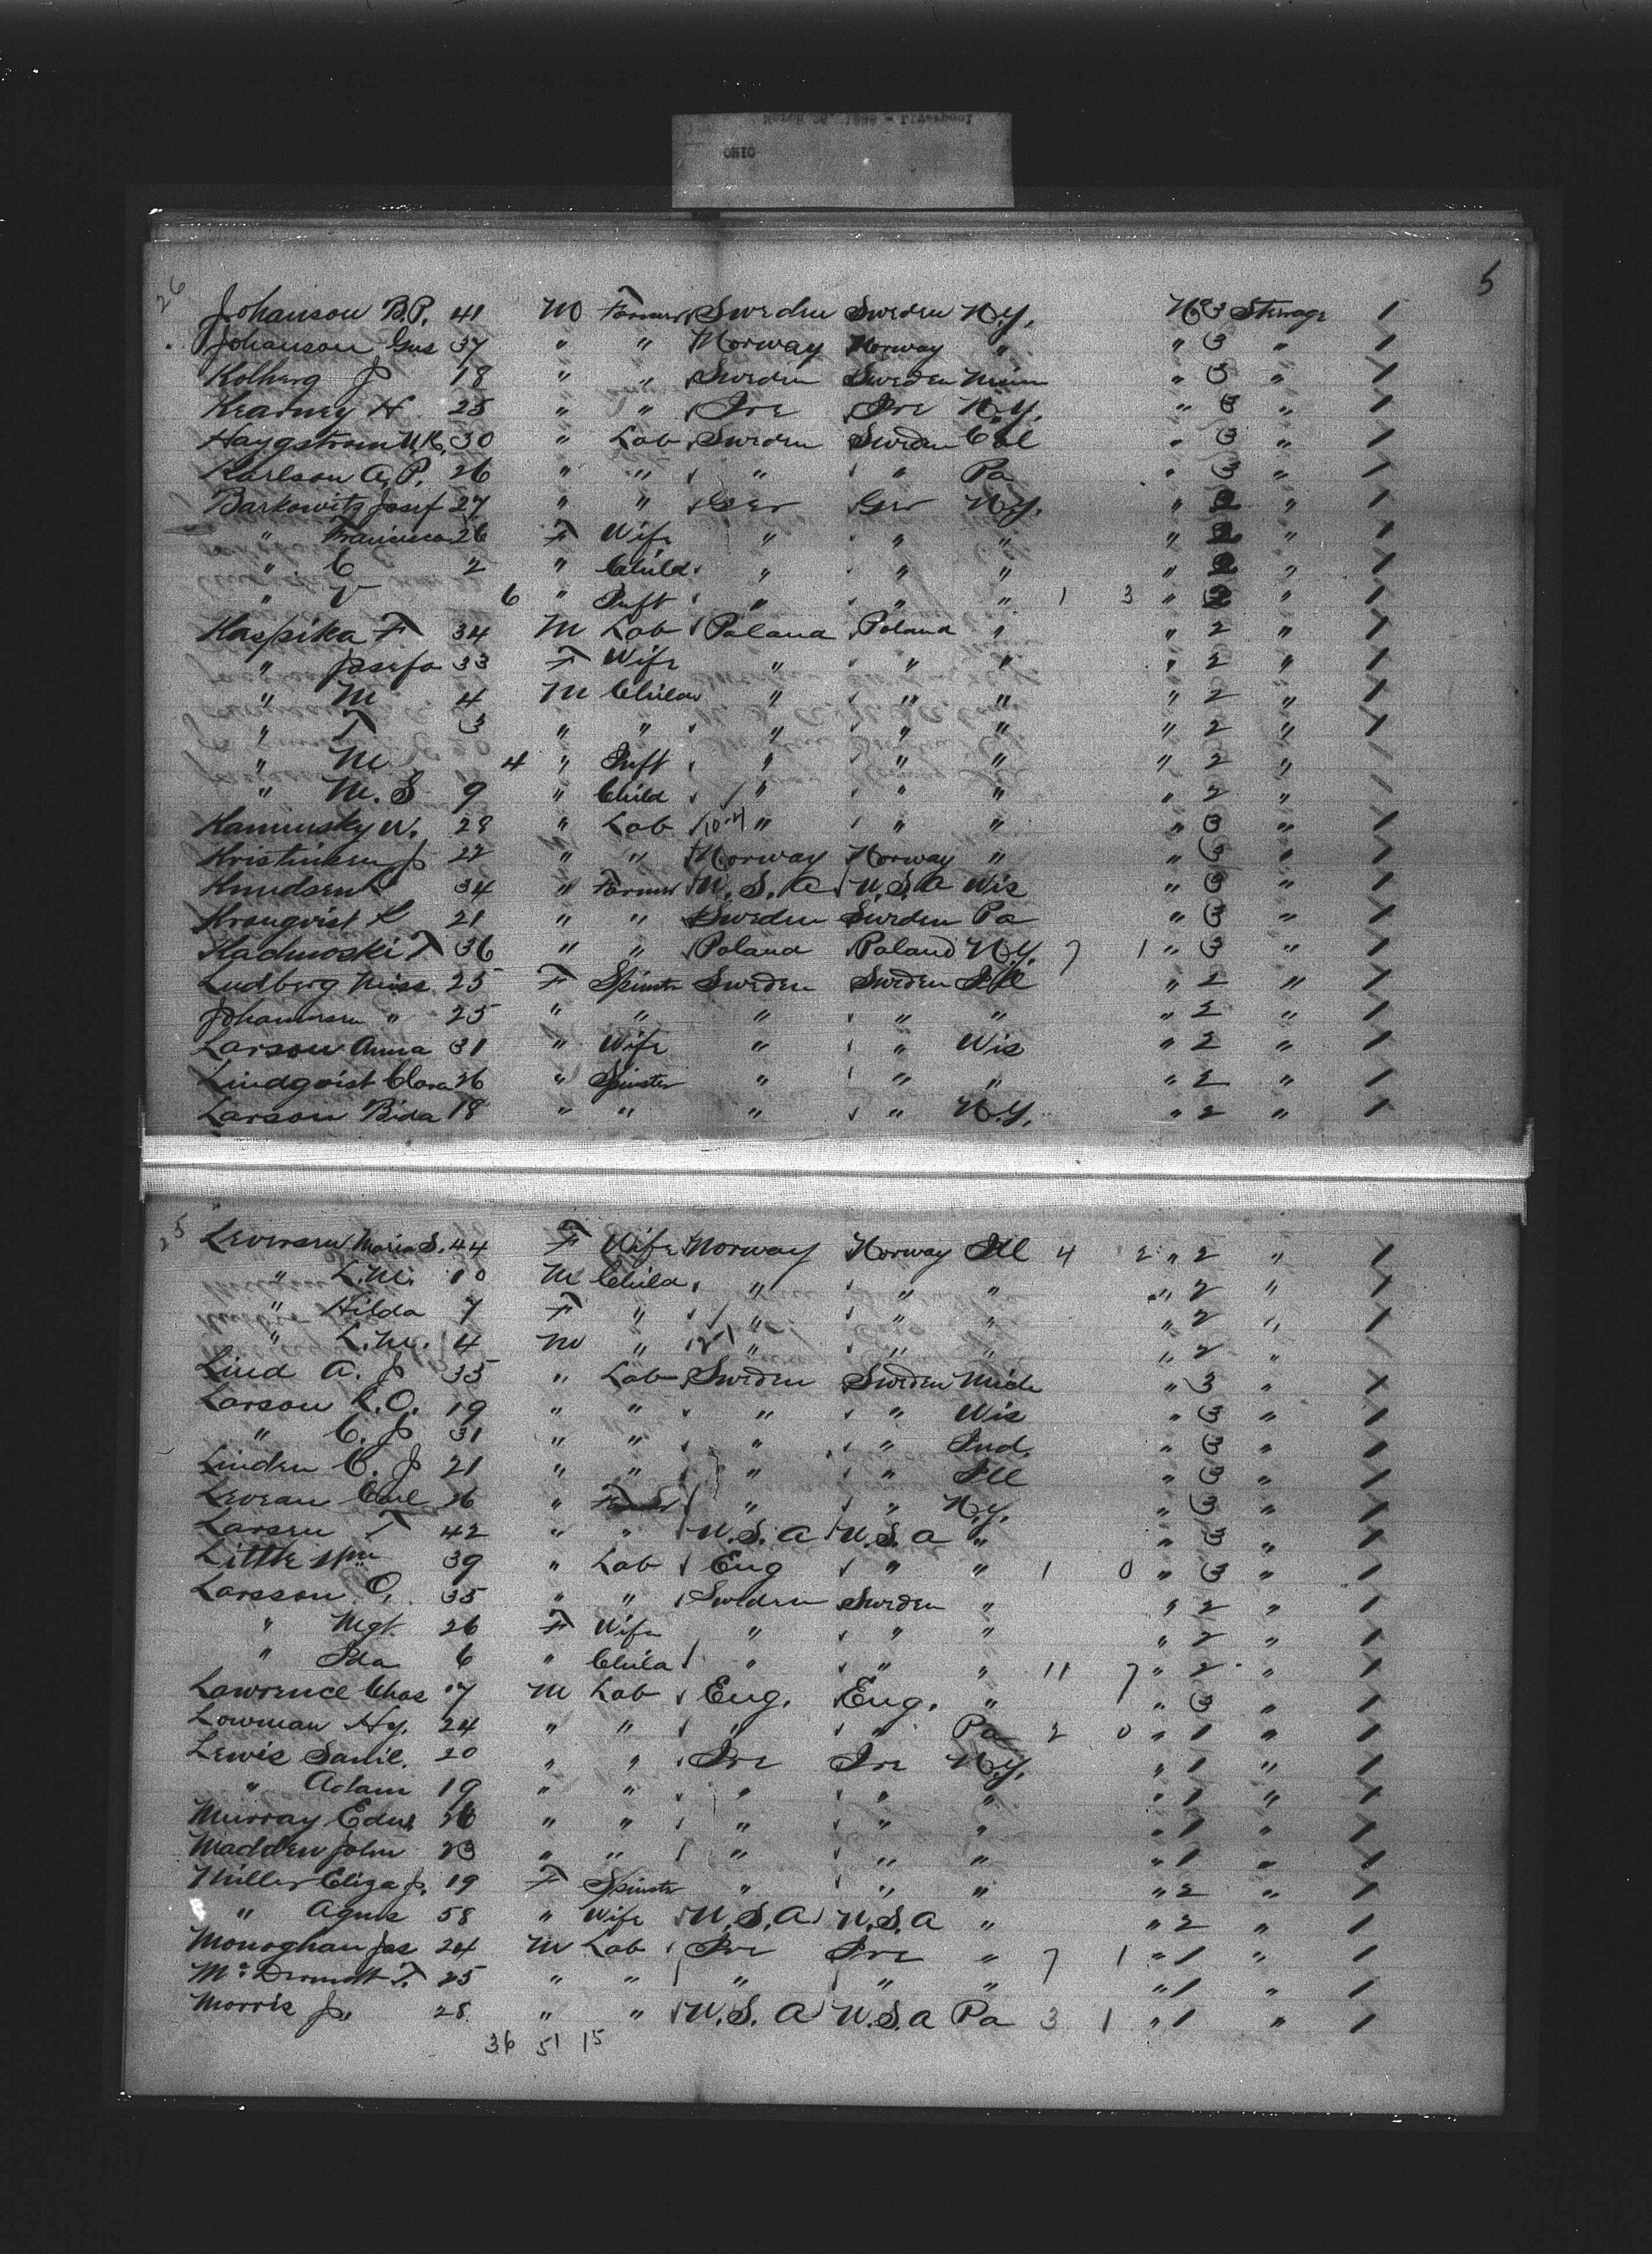 OHIO
5
26
Johanson B.P. 41 M Farmer Sweden Sweden N.Y. No 3 Steerage 1
Johanson Gus 37 " " Norway Norway " " 3 " 1
Kolberg J 18 " " Sweden Sweden Minn " 3 " 1
Kearney H 25 " " Ire Ire N.Y. " 3 " 1
Haygstrom 30 " Lab Sweden Sweden Cal " 3 " 1
Karlson A.P. 26 " " " " Pa " 3 " 1
Barkowitz Josef 27 " " Ger Ger N.Y. " 2 " 1
" Francisca 26 F Wife " " " " 2 " 1
" C 2 " Child " " " " 2 " 1
" V 6 " Inft " " " 1 3 " 2 " 1
Kaspika F 34 M Lab Poland Poland " " 2 " 1
" Josefa 33 F Wife " " " " 2 " 1
" M 4 M Child " " " " 2 " 1
" F 3 " " " " " " 2 " 1
" M 4 " Inft " " " " 2 " /
" M. S 9 " Child " " " " 2 " /
Kaminsky W. 28 " Lab 10-4 " " " " 3 " 1
Kristinsen J 22 " " Norway Norway " " 3 " 1
Knudsen 34 " Farmer U.S.A U.S.A Wis " 3 " 1
Kronqvist K 21 " " Sweden Sweden Pa " 3 " 1
Kachnoski F 36 " " Poland Poland N.Y. 7 1 " 3 " 1
Ludberg Miss 25 F Spinster Sweden Sweden Ill " 2 " 1
Johannsen " 25 " " " " " " 2 " 1
Larson Anna 31 " Wife " " Wis " 2 " 1
Lindqvist Clara 26 " Spinster " " " " 2 " 1
Larson Bida 18 " " " " N.Y. " 2 " 1
25
Leversen Maria S. 44 F Wife Norway Norway Ill 4 2 " 2 " 1
" L.M. 10 M Child " " " " 2 " 1
" Hilda 7 F " " " " " 2 " 1
" L.M. 4 M " 12-1 " " " " 2 " /
Lind A. J 35 " Lab Sweden Sweden Mich " 3 " 1
Larson L.O. 19 " " " " Wis " 3 " 1
" C. J 31 " " " " Ind. " 3 " 1
Linden C. J 21 " " " " Ill " 3 " 1
Levean Carl 26 " Farmer " " N.Y. " 3 " 1
Larsen F 42 " " U.S.A U.S.A " " 3 " 1
Little Wm 39 " Lab Eng " " 1 0 " 3 " 1
Larsson O. 35 " " Sweden Sweden " " 2 " 1
" Mgt 26 F Wife " " " " 2 " 1
" Ida 6 " Child " " " 11 7 " 2 " 1
Lawrence Chas 17 M Lab Eng. Eng. " " 3 " 1
Lowman Hy. 24 " " " " Pa 2 0 " 1 " 1
Lewis Saml. 20 " " Ire Ire N.Y. " 1 " 1
" Adam 19 " " " " " " 1 " 1
Murray Edw. 26 " " " " " " 1 " 1
Madden John 23 " " " " " " 1 " 1
Miller Eliza J. 19 F Spinster " " " " 2 " 1
" Agnes 58 " Wife U.S.A U.S.A " " 2 " 1
Monoghan Jas 24 M Lab Ire Ire " 7 1 " 1 " 1
McDermott F. 25 " " " " " " 1 " 1
Morris J. 28 " " U.S.A U.S.A Pa 3 1 " 1 " 1
36 51 15